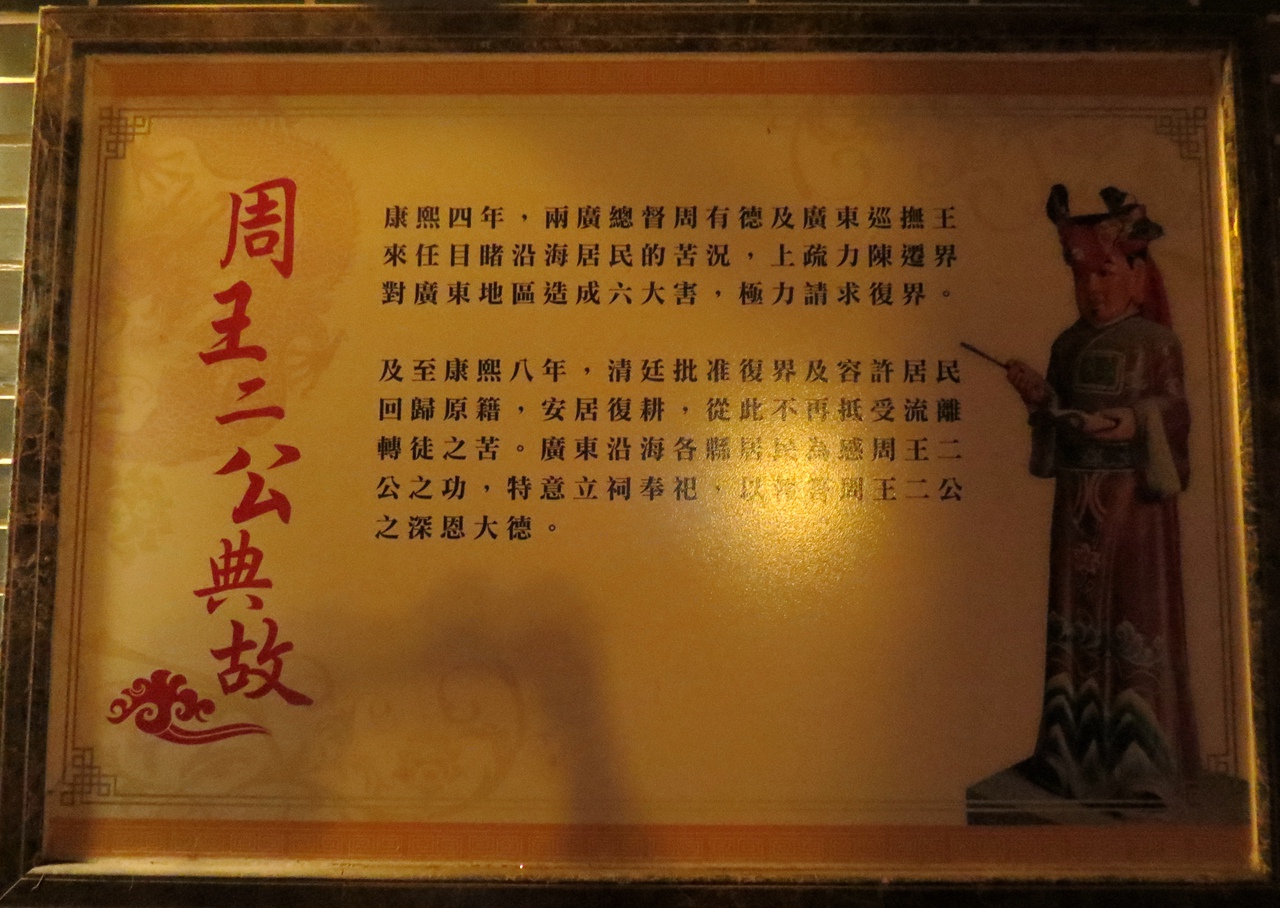 周王二公典故
康熙四年，兩廣總督周有德及廣東巡撫王
來任目睹沿海居民的苦況，上疏力陳遷界
對廣東地區造成六大害，極力請求復界。
及至康熙八年，清廷批准復界及容許居民
回歸原籍，安居復耕，從此不再抵受流離
轉徒之苦。廣東沿海各縣居民為感周王二
公之功，特意立祠奉祀，以 周王二公
之深恩大德。